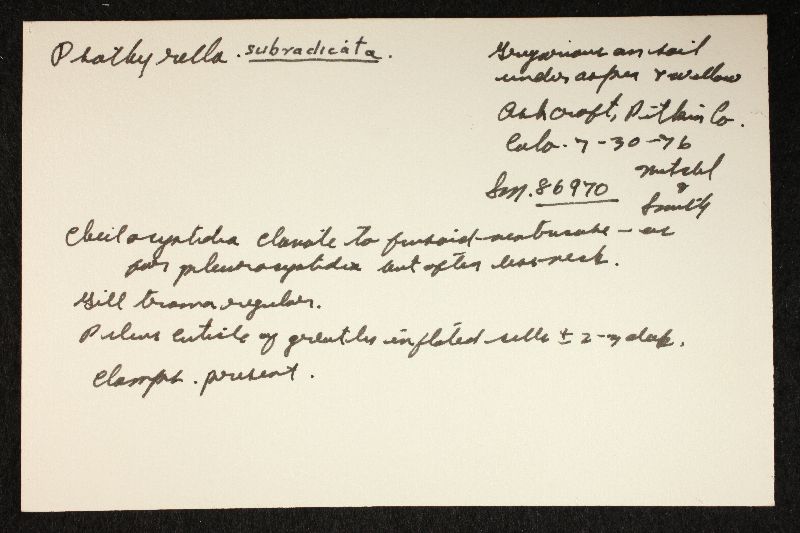 Psathyrella. subradicata.
Gregarious on soil
under aspen & willow
Ashcroft, Pitkin Co.
Colo. 7-30-76
Mitchel
&
Smith
Sm. 86970
Cheilocystidia clavate to fusoid-ventricose - as
for pleurocystidia but often less neck.
Gill trama regular.
Pileus cuticle of greatly inflated cells ± 2-3 deep.
Clamps. present.